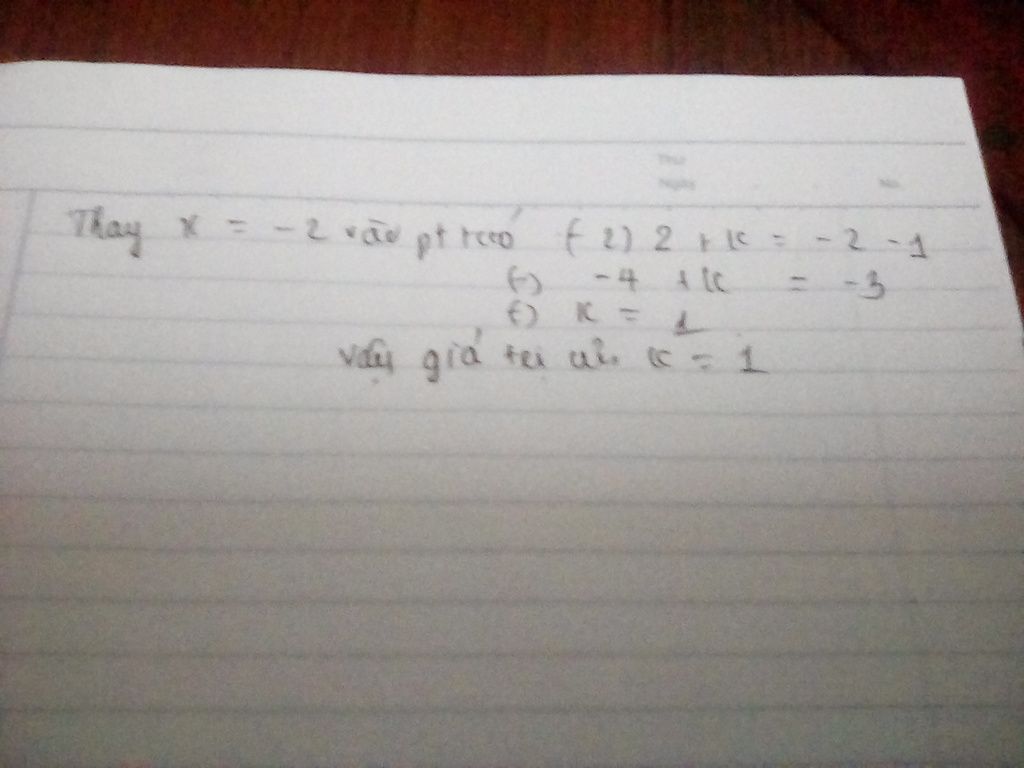 Thứ
Ngày No.
Thay x = -2 vào pt ta có (-2) 2 + k = -2 -1
(-) -4 + k = -3
(-) k = 1
Vậy giá trị của k = 1